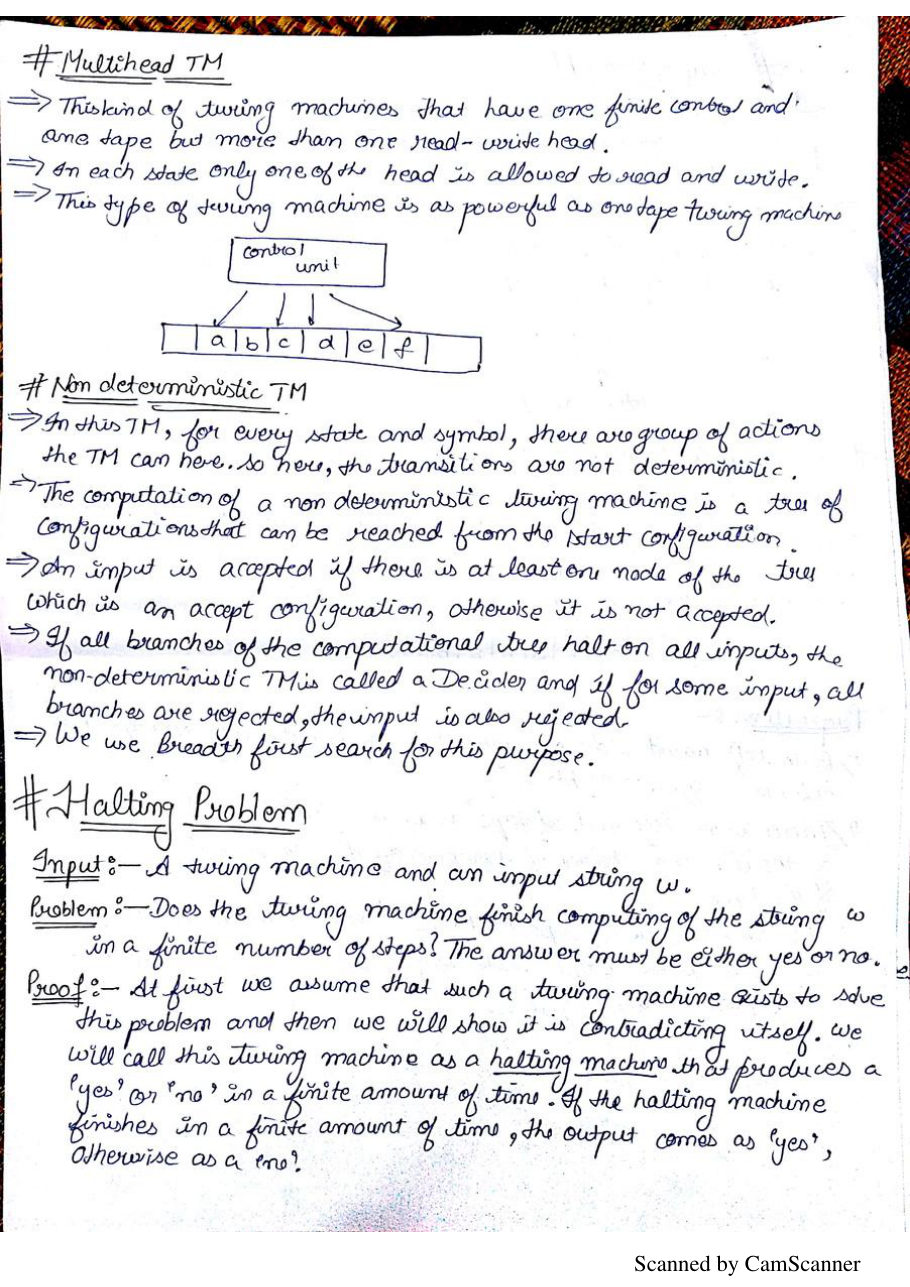 # Multihead TM
⇒ This kind of turing machines that have one finite control and
one tape but more than one read-write head.
⇒ In each state only one of the head is allowed to read and write.
⇒ This type of turing machine is as powerful as one tape turing machine
control
unit
a b c d e f
# Non deterministic TM
⇒ In this TM, for every state and symbol, there are group of actions
the TM can here. so here, the transitions are not deterministic.
⇒ The computation of a non deterministic turing machine is a tree of
configurations that can be reached from the start configuration.
⇒ An input is accepted if there is at least one node of the tree
which is an accept configuration, otherwise it is not accepted.
⇒ If all branches of the computational tree halt on all inputs, the
non-deterministic TM is called a Decider and if for some input, all
branches are rejected, the input is also rejected.
⇒ We use Breadth first search for this purpose.
# Halting Problem
Input :- A turing machine and an input string w.
Problem :- Does the turing machine finish computing of the string w
in a finite number of steps? The answer must be either yes or no.
Proof :- At first we assume that such a turing machine exists to solve
this problem and then we will show it is contradicting itself. we
will call this turing machine as a halting machine that produces a
'yes' or 'no' in a finite amount of time. If the halting machine
finishes in a finite amount of time, the output comes as 'yes',
otherwise as a 'no'.
Scanned by CamScanner